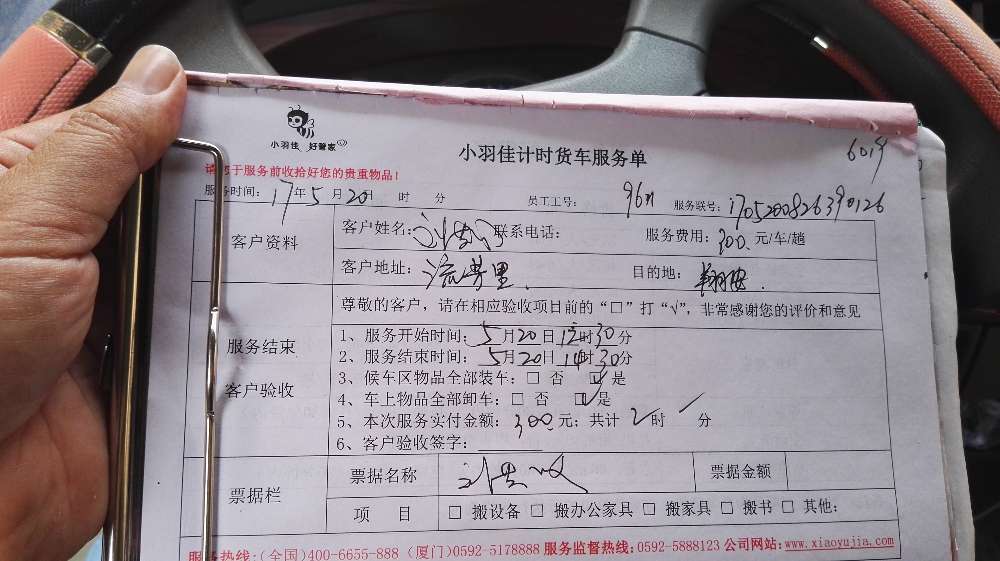 小羽佳 好管家
小羽佳计时货车服务单
6019
请您于服务前收拾好您的贵重物品！
服务时间：17年5月20日 时 分 员工工号： 服务联号：1705200826390126
客户资料
客户姓名： 联系电话： 服务费用：300.元/车/趟
客户地址：流芳里 目的地：翔安
服务结束
客户验收
尊敬的客户，请在相应验收项目前的“□”打“√”，非常感谢您的评价和意见
1、服务开始时间：5月20日12时30分
2、服务结束时间：5月20日14时30分
3、候车区物品全部装车：□ 否 ☑ 是
4、车上物品全部卸车：□ 否 ☑ 是
5、本次服务实付金额：300.元；共计 2 时 分
6、客户验收签字：
票据栏
票据名称 票据金额
项 目 □ 搬设备 □ 搬办公家具 □ 搬家具 □ 搬书 □ 其他：
服务热线：(全国)400-6655-888（厦门)0592-5178888 服务监督热线：0592-5888123 公司网站：www.xiaoyujia.com